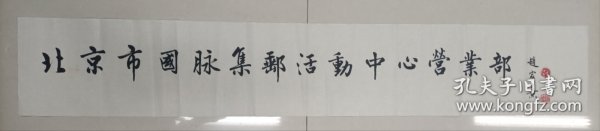 北京市國脉集郵活動中心營業部
孔夫子旧书网
www.kongfz.com